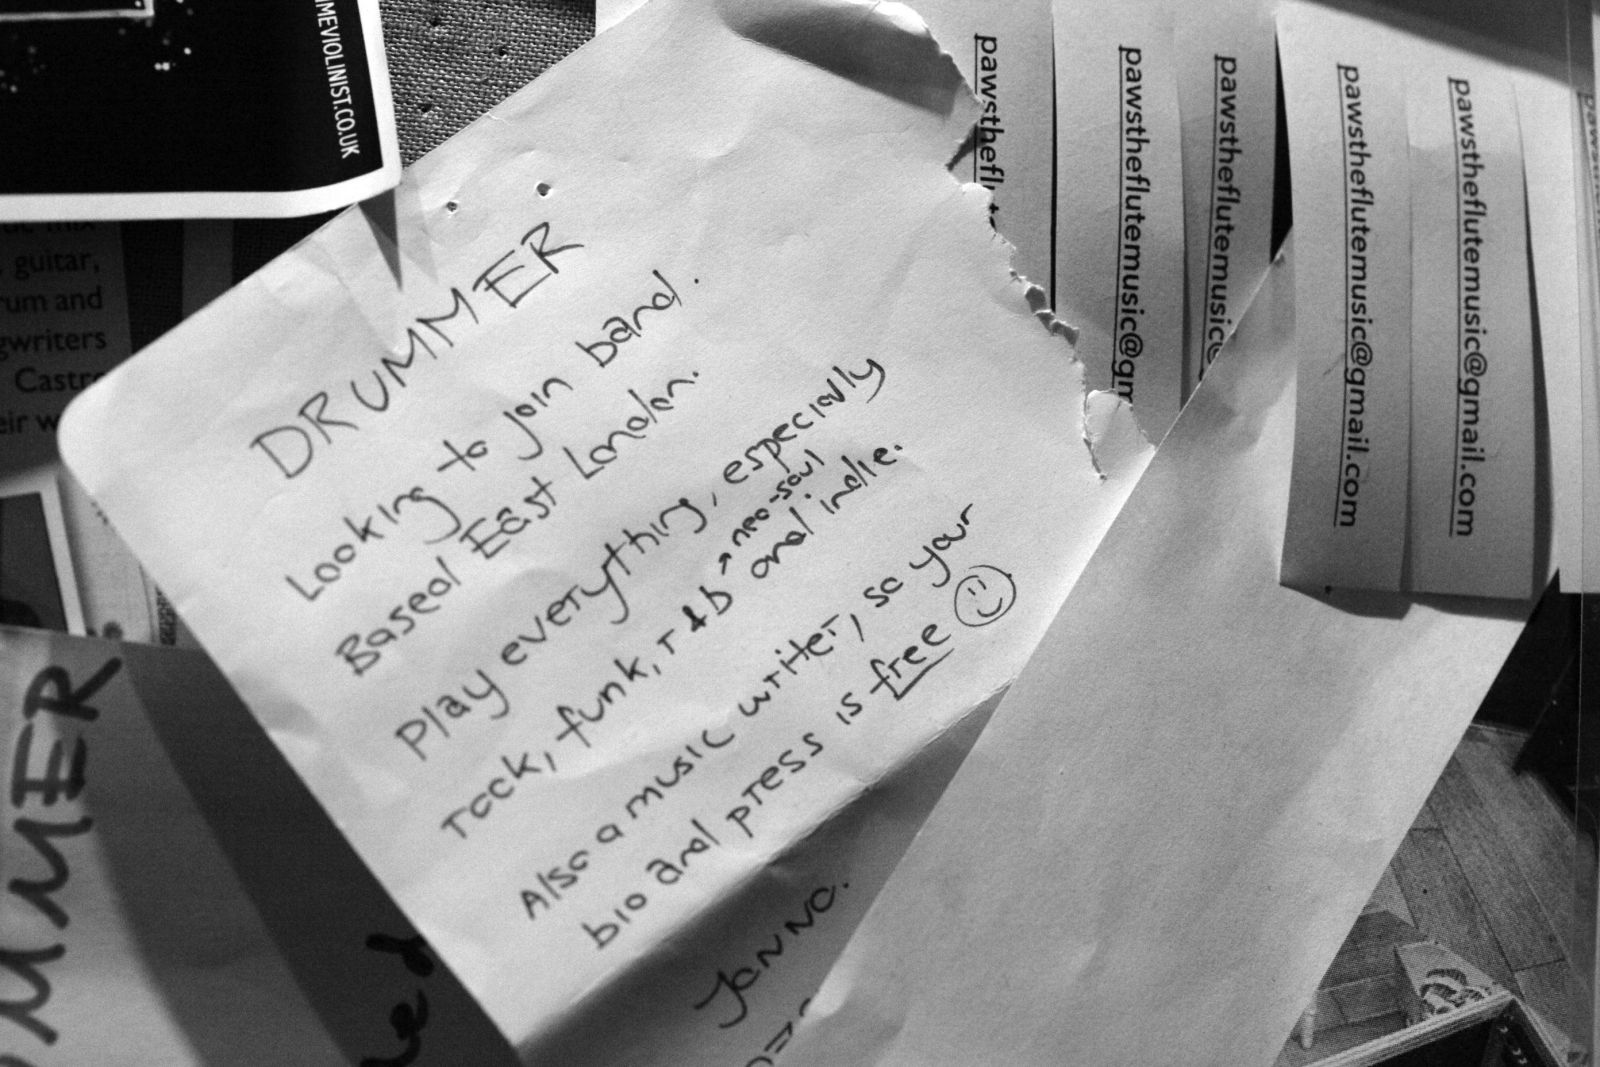 DRUMMER
Looking to join band.
Based East London.
Play everything, especially
rock, funk, r&b → neo-soul
and indie.
Also a music writer, so your
bio and press is free
JONNO.
MEVIOLINIST.CO.UK
guitar,
rum and
gwriters
Castro
eir w
UMMER
ed
pawstheflu
pawstheflutemusic@gm
pawstheflutemusic@
pawstheflutemusic@gmail.com
pawstheflutemusic@gmail.com